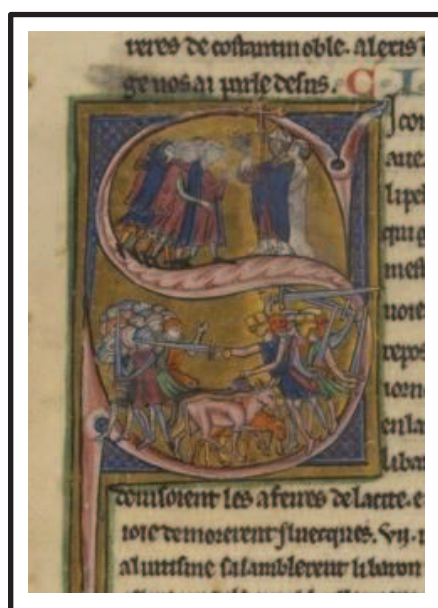 reres de costantin oble. alexis d
ge uos ai parle desus. C. L
J cou
aue
li pel
qui g
mess
noie
repos
iorn
en la
li bar
deuisoient les afeires de la cite. e
ioie demorerent iluecques. vij. i
al uitisme sasamblerent li baron